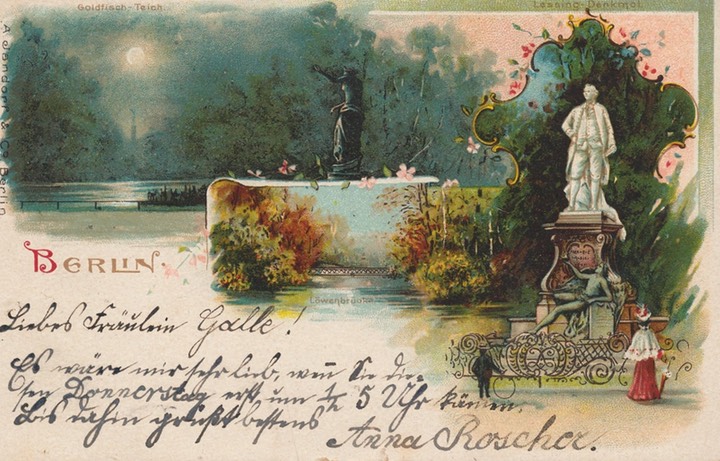 Goldfisch-Teich.
Lessing-Denkmal.
BERLIN.
Löwenbrücke
Liebes Fräulein Galle!
Es wäre mir sehr lieb, wenn Sie die-
sen Donnerstag erst um 1/2 5 Uhr kämen.
Bis dahin grüßt bestens
Anna Roscher.